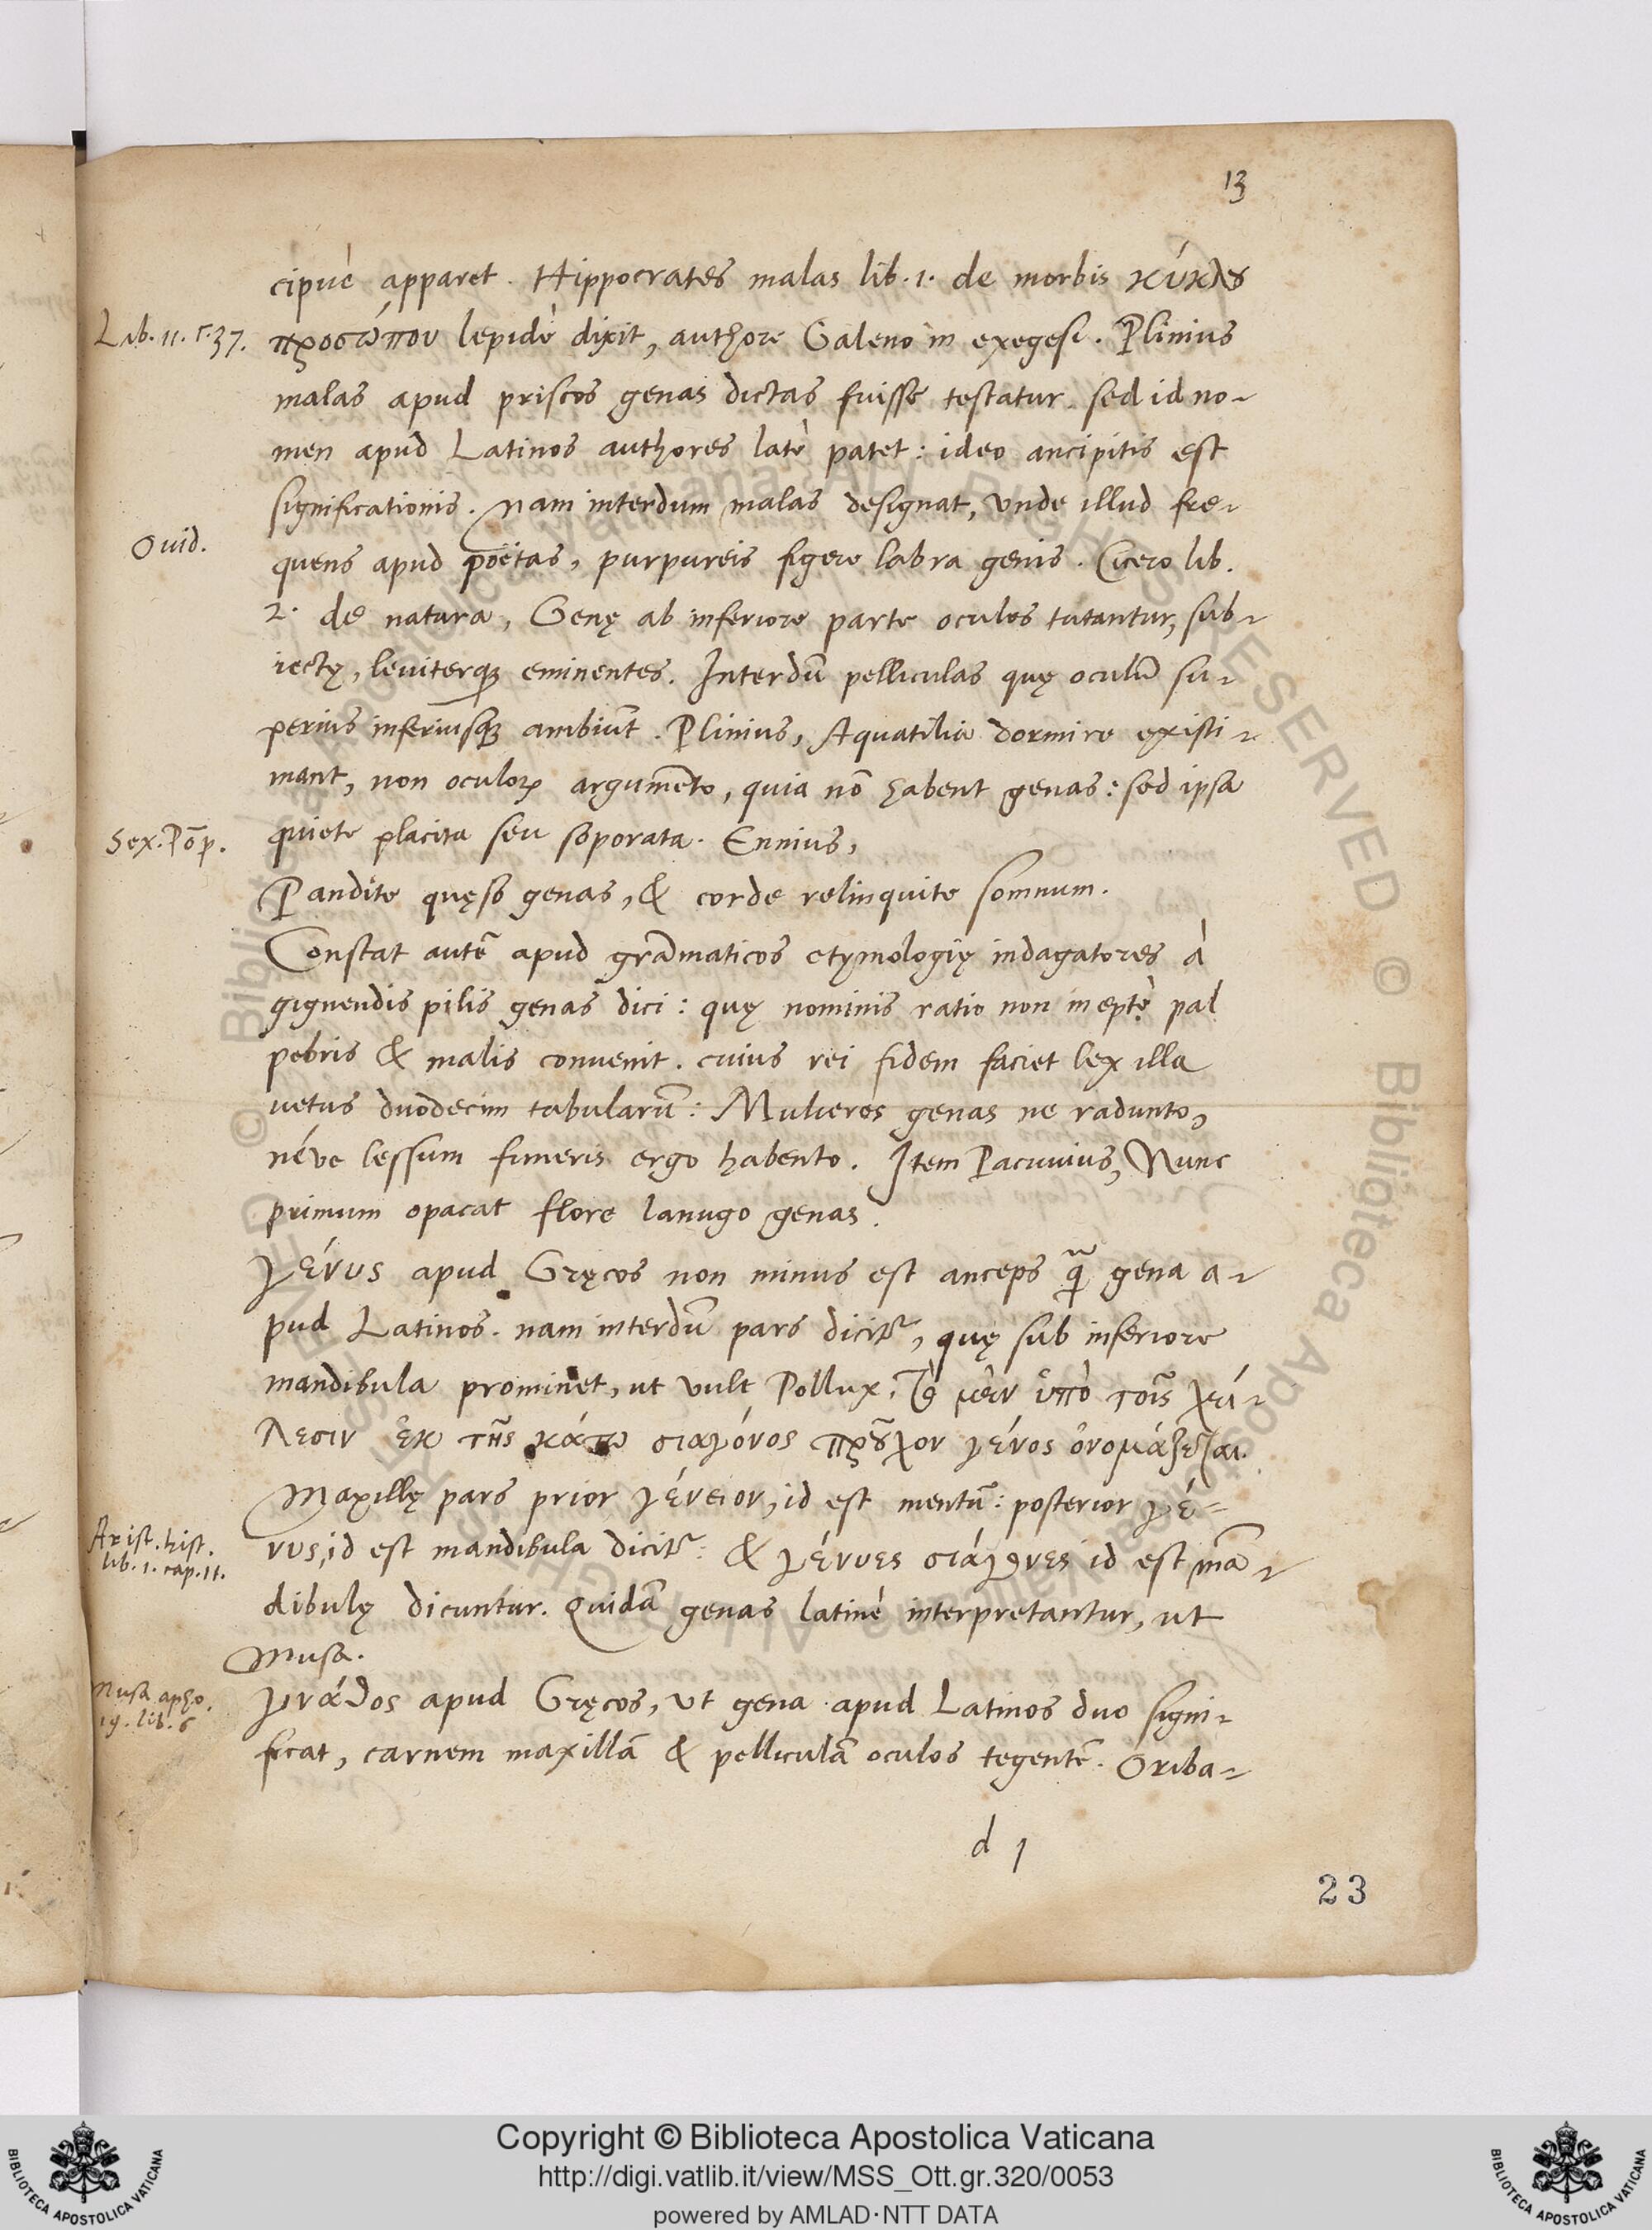 13
cipuè apparet. Hippocrates malas lib. 1. de morbis κύκλȣς
Lib. 11. c. 37.
προσώπου lepidè dixit, authore Galeno in exegesi. Plinius
malas apud priscos genas dictas fuisse testatur. sed id no-
men apud Latinos authores latè patet: ideo ancipitis est
significationis. Nam interdum malas designat, Vnde illud fre-
Ouid.
quens apud poëtas, purpureis figere labra genis. Cicero lib.
2. de natura, Genę ab inferiore parte oculos tutantur, sub-
iectę, leuiterq; eminentes. Interdū pelliculas quę oculū su-
perius inferiusq; ambiūt. Plinius, Aquatilia dormire existi-
mant, non oculoꝝ argumēto, quia nō habent genas: sed ipsa
Sex. Pōp.
quiete placita seu soporata. Ennius,
Pandite quęso genas, & corde relinquite somnum.
Constat autē apud grāmaticos etymologię indagatores à
gignendis pilis genas dici: quę nominis ratio non ineptè pal
pebris & malis conuenit. cuius rei fidem faciet lex illa
uetus duodecim tabularū: Mulieres genas ne radunto,
néve lessum funeris ergo habento. Item Pacuuius, Nunc
primum opacat flore lanugo genas.
γένυς apud Gręcos non minus est anceps q̃ gena a-
pud Latinos. nam interdū pars dicitr̃, quę sub inferiore
mandibula prominet, ut vult Pollux, Τὸ μὲν ὑπὸ τοῖς χεί-
λεσιν ἐκ τῆς κάτω σιαγόνος πρȣ̃χον γένος ὀνομάζεται.
Maxillę pars prior γένειον, id est mentū: posterior γέ-
Arist. hist.
lib. 1. cap. 11.
νυς, id est mandibula dicitr̃: & γένυες σιάγονες id est mā-
dibulę dicuntur. Quidā genas latinè interpretantur, ut
Musa.
Musa apho.
19. lib. 6
γνάθος apud Gręcos, ut gena apud Latinos duo signi-
ficat, carnem maxillā & pelliculā oculos tegentē. Oriba-
d 1
23
Copyright © Biblioteca Apostolica Vaticana
http://digi.vatlib.it/view/MSS_Ott.gr.320/0053
powered by AMLAD·NTT DATA
BIBLIOTECA APOSTOLICA VATICANA
BIBLIOTECA APOSTOLICA VATICANA